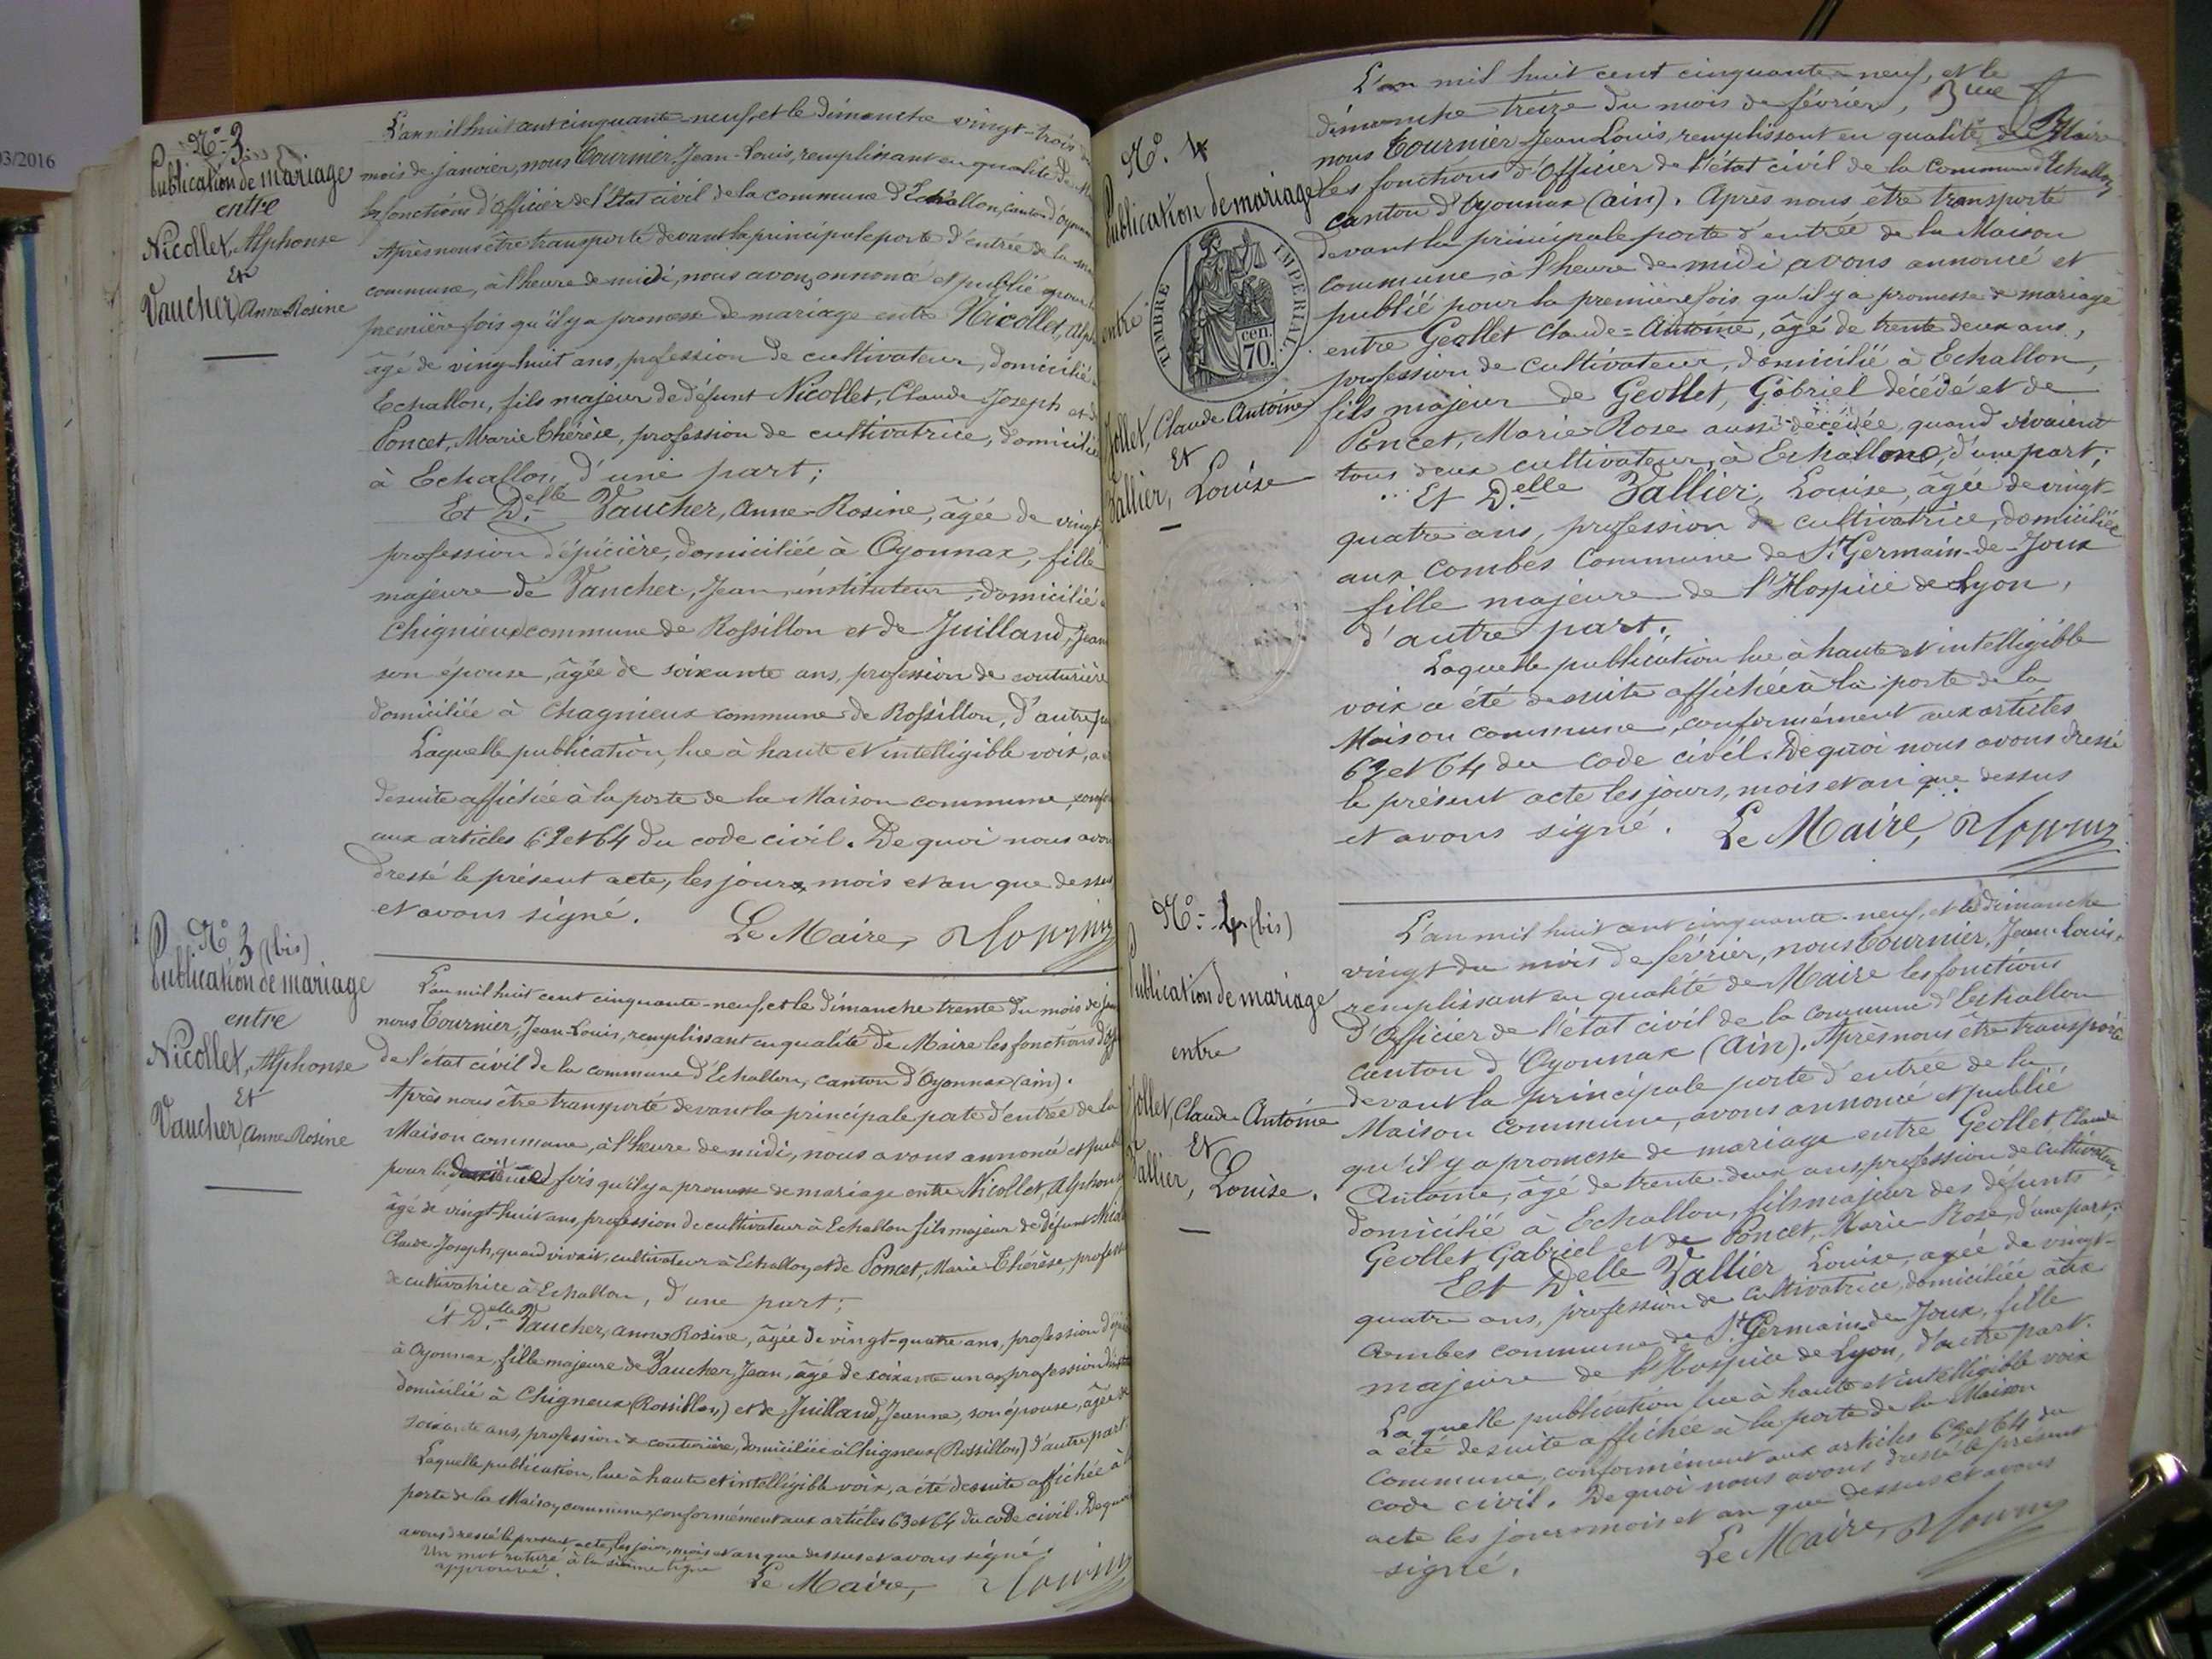 03/2016
N° 3
Publication de mariage
entre
Nicollet, Alphonse
Et
Vaucher, Anne-Rosine
L'an mil huit cent cinquante-neuf, et le dimanche vingt-trois
mois de janvier, nous Tournier, Jean-Louis, remplissant en qualité de
les fonctions d'officier de l'Etat civil de la commune d'Echallon, canton d'Oyonnax
Après nous être transporté devant la principale porte d'entrée de la
commune, à l'heure de midi, nous avons annoncé et publié pour la
première fois qu'il y a promesse de mariage entre Nicollet, Alph
âgé de ving-huit ans, profession de cultivateur, domicilié
Echallon, fils majeur de défunt Nicollet, Claude Joseph et de
Poncet, Marie Thérèse, profession de cultivatrice, domicilié
à Echallon, d'une part;
Et D.elle Vaucher, Anne-Rosine, âgée de vingt
profession d'épicière, domiciliée à Oyonnax, fille
majeure de Vaucher, Jean, instituteur, domicilié
Chignieux commune de Rossillon et de Juilland, Jean
son épouse, âgée de soixante ans, profession de couturière
domiciliée à Chagnieux commune de Rossillon, d'autre
Laquelle publication, lue à haute et intelligible voix, a
desuite affichée à la porte de la Maison commune, conf
aux articles 63 et 64 du code civil. De quoi nous avon
dressé le présent acte, les jours, mois et an que dessus
et avons signé. Le Maire,
N° 3 (bis)
Publication de mariage
entre
Nicollet, Alphonse
Et
Vaucher, Anne-Rosine
L'an mil huit cent cinquante-neuf, et le dimanche trente du mois de
nous Tournier, Jean-Louis, remplissant en qualité de Maire les fonctions d'off
de l'état civil de la commune d'Echallon, canton d'Oyonnax (ain).
Après nous être transporté devant la principale porte d'entrée de la
Maison commune, à l'heure de midi, nous avons annoncé et publ
pour la fois qu'il y a promesse de mariage entre Nicollet, Alphonse
âgé de vingt-huit ans, profession de cultivateur à Echallon fils majeur de défunt
Claude-Joseph, quand vivait, cultivateur à Echallon, et de Poncet, Marie-Thérèse, profess
de cultivatrice à Echallon, d'une part;
Et D.elle Vaucher, anne Rosine, âgée de vingt-quatre ans, profession
à Oyonnax, fille majeure de Vaucher, Jean, âgé de soixante un ans, profession
domicilié à Chigneux (Rossillon) et de Juilland, Jeanne, son épouse, âgée de
soixante ans, profession de couturière, domiciliée à Chigneux (Rossillon) d'autre part
Laquelle publication, lue à haute et intelligible voix, a été desuite affichée à
porte de la Maison commune, conformément aux articles 63 et 64 du code civil. De quoi
avons dressé le présent acte, les jour, mois et an que dessus et avons signé.
Un mot raturé à la sixième ligne
approuvé.
Le Maire,
N°. 4
Publication de mariage
TIMBRE IMPERIAL
cen.
70.
entre
Jollet, Claude Antoine
Et
Vallier, Louise
L'an mil huit cent cinquante-neuf, et le
dimanche treize du mois de février,
nous Tournier Jean Louis, remplissant en qualité de Maire
les fonctions d'Officier de l'état civil de la commune d'Echallon
canton d'Oyonnax (ain). Après nous être transporté
devant la principale porte d'entrée de la Maison
commune, à l'heure de midi avons annoncé et
publié pour la première fois, qu'il y a promesse de mariage
entre Geollet Claude-Antoine, âgé de trente deux ans,
profession de cultivateur, domicilié à Echallon,
fils majeur de Geollet, Gabriel décédé et de
Poncet, Marie-Rose aussi décédée, quand vivaient
tous deux cultivateurs, à Echallon, d'une part;
Et D.elle Vallier, Louise, âgée de vingt-
quatre ans, profession de cultivatrice, domiciliée
aux Combes Commune de St Germain-de-Joux
fille majeure de l'Hospice de Lyon,
d'autre part.
Laquelle publication lue à haute et intelligible
voix a été desuite affichée à la porte de la
Maison commune, conformément aux articles
63 et 64 du code civil. De quoi nous avons dressé
le présent acte les jours, mois et an que dessus
et avons signé. Le Maire,
N° 4 (bis)
Publication de mariage
entre
Jollet, Claude Antoine
Et
Vallier, Louise.
L'an mil huit cent cinquante-neuf, et le dimanche
vingt du mois de février, nous Tournier, Jean-Louis,
remplissant en qualité de Maire les fonctions
d'Officier de l'état civil de la commune d'Echallon
canton d'Oyonnax (ain). Après nous être transporté
devant la principale porte d'entrée de la
Maison commune, avons annoncé et publié
qu'il y a promesse de mariage entre Geollet, Claude
Antoine, âgé de trente-deux ans profession de cultivateur,
domicilié à Echallon, fils majeur des défunts
Geollet Gabriel et de Poncet, Marie-Rose, d'une part;
Et Delle Vallier Louise, agée de vingt-
quatre ans, profession de cultivatrice, domiciliée aux
Combes commune de St Germain de Joux, fille
majeure de l'Hospice de Lyon, d'autre part.
Laquelle publication lue à haute et intelligible voix
a été desuite affichée à la porte de la Maison
Commune, conformément aux articles 63 et 64 du
code civil. De quoi nous avons dressé le présent
acte les jour mois et an que dessus et avons
signé. Le Maire,